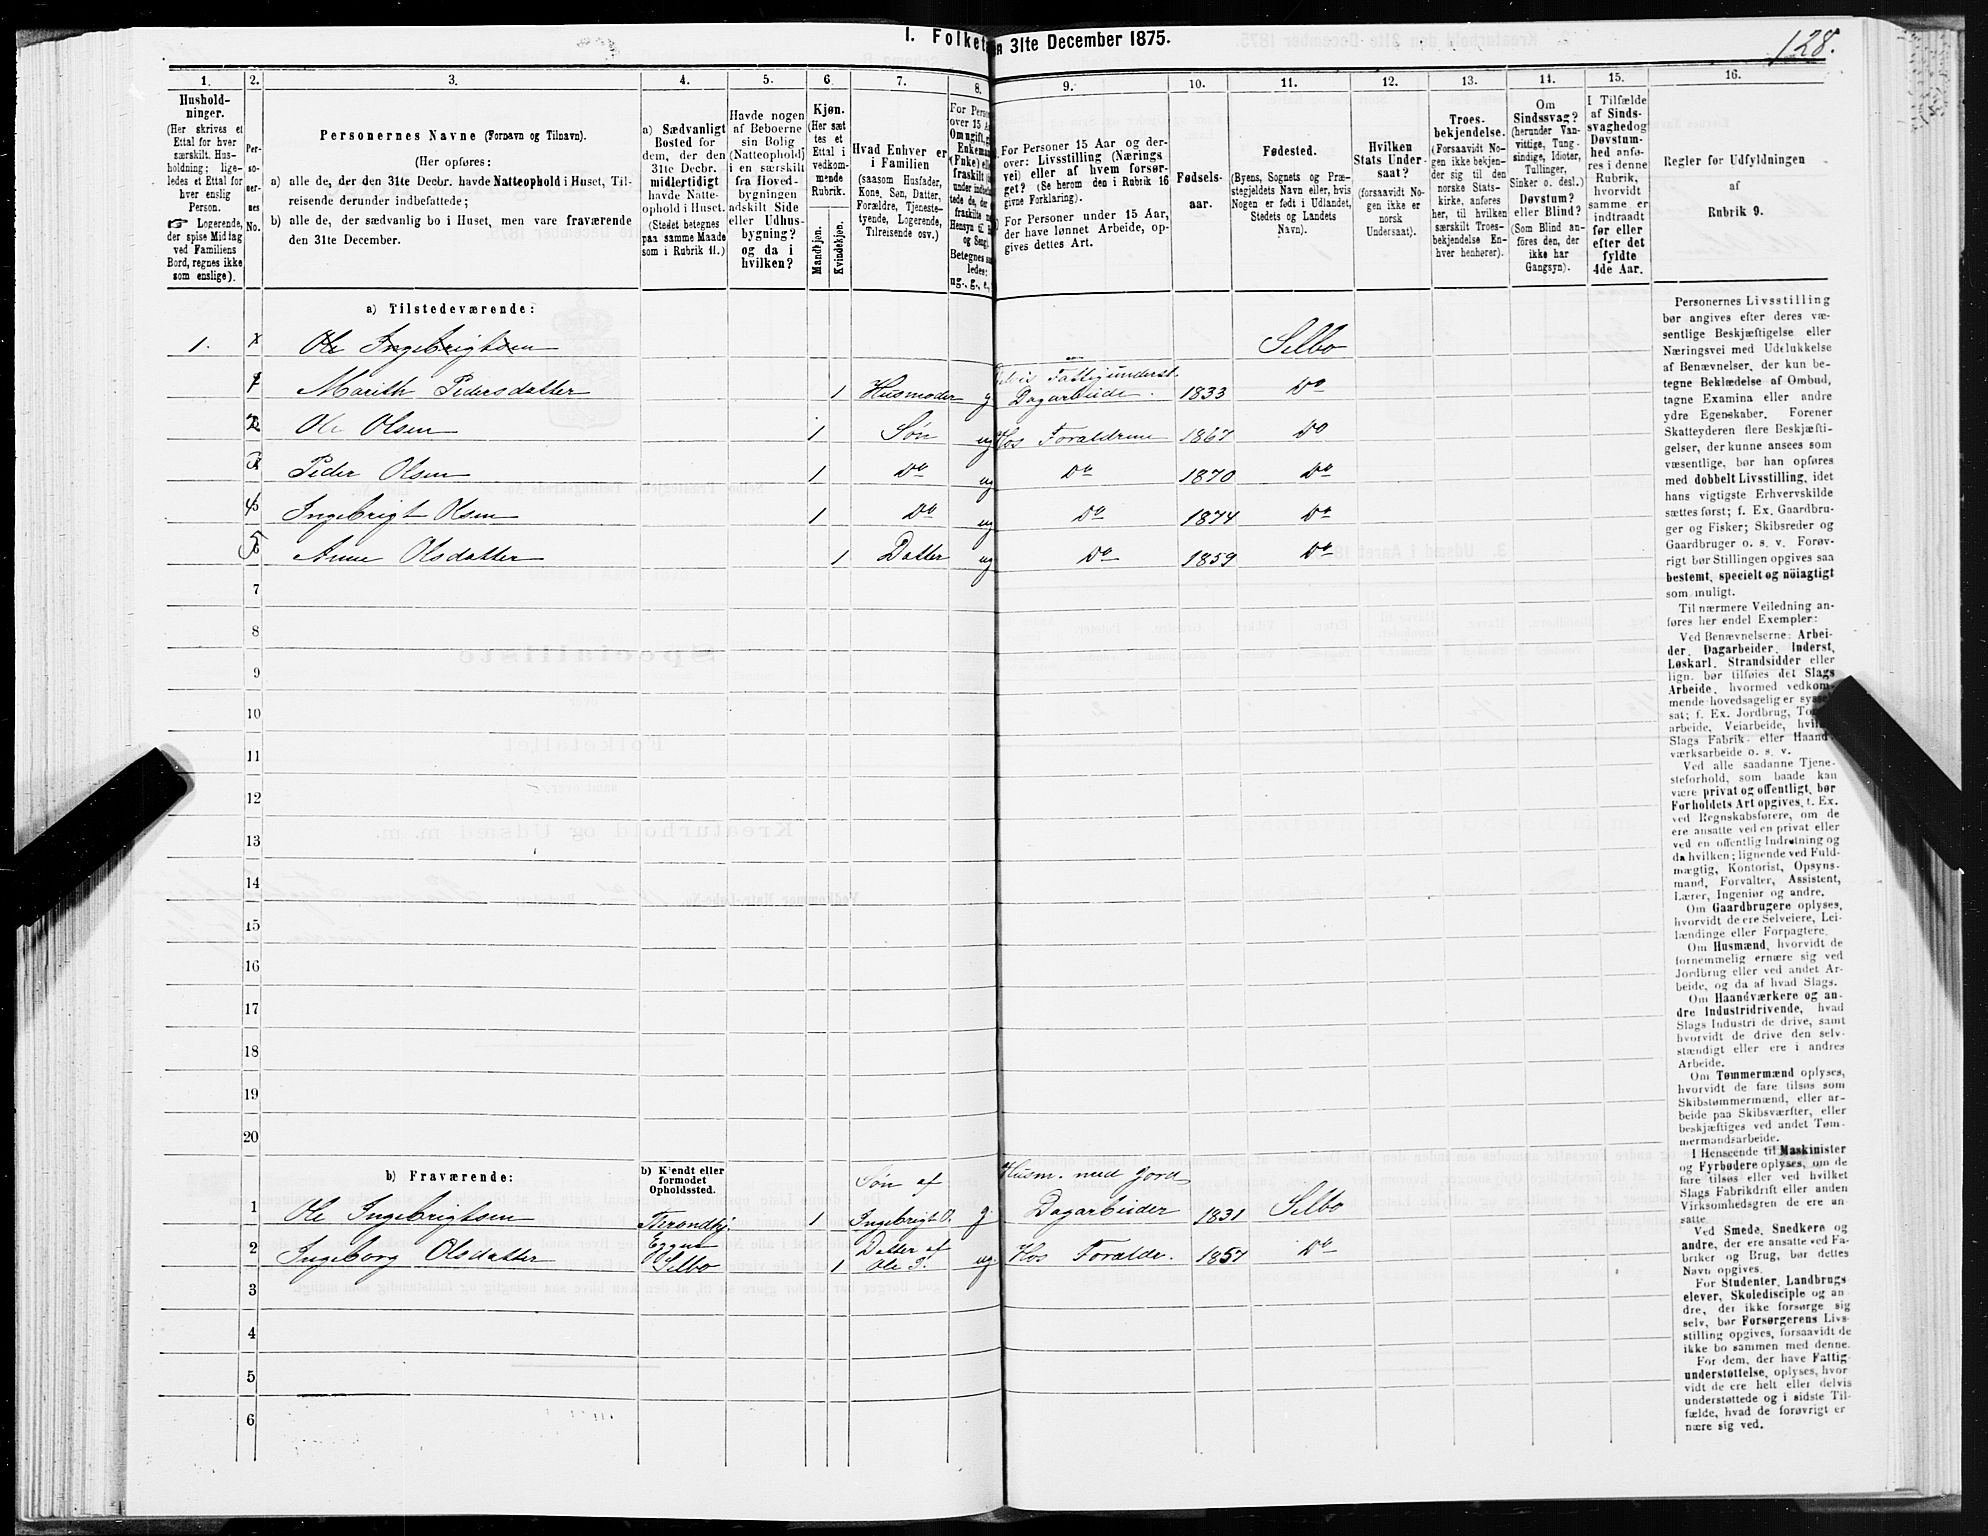 128.
I. Folket
n 31te December 1875.
1. 2. 3. 4. 5. 6. 7. 8. 9. 10. 11. 12. 13. 14. 15. 16.
Hushold-
ninger.
(Her skrives et
Ettal for hver
særskilt. Hus-
holdning; lige-
ledes et Ettal for
hver enslig
Person.
Logerende,
der spise Middag
ved Familiens
Bord, regnes ikke
som enslige).
Per-
so-
ner-
nes
No.
Personernes Navne (Fornavn og Tilnavn).
(Her opføres:
a) alle de, der den 31te Decbr. havde Natteophold i Huset, Til-
reisende derunder indbefattede;
b) alle de, der sædvanlig bo i Huset, men vare fraværende
den 31te December.
a) Sædvanligt
Bosted for
dem, der den
31te Decbr.
midlertidigt
havde Natte-
ophold i Huset.
(Stedet betegnes
paa samme Maade
som i Rubrik 11.)
Havde nogen
af Beboerne
sin Bolig
(Natteophold)
i en særskilt
fra Hoved-
bygningen
adskilt Side
eller Udhus-
bygning?
og da i
hvilken?
Kjøn.
(Her sæt
tes et
Ettal i
vedkom-
mende
Rubrik.
Mandkjøn.
Kvindekjøn.
Hvad Enhver er
i Familien
(saasom Husfader,
Kone, Søn, Datter,
Forældre, Tjeneste-
tyende, Logerende,
Tilreisende osv.)
For Person
over 15 A
Om ugift, g
Enkemand
(Enke) ell
fraskilt
under indb
tede de, der
fraskilte
Hensyn til
og Seng).
Betegnes s
ledes:
ug., g., e.,
For Personer 15 Aar og der-
over: Livsstilling (Nærings
vei) eller af hvem forsør-
get? (Se herom den i Rubrik 16
givne Forklaring).
For Personer under 15 Aar,
der have lønnet Arbeide, op-
gives dettes Art.
Fødsels-
aar.
Fødested.
(Byens, Sognets og Præ-
stegjeldets Navn eller, hvis
Nogen er født i Udlandet,
Stedets og Landets
Navn).
Hvilken
Stats Under-
saat?
(forsaavidt No-
gen ikke er
norsk
Undersaat).
Troes-
bekjendelse.
(Forsaavidt No-
gen ikke bekjen-
der sig til den
norske Stats-
kirke, anføres
her, til hvilken
særskilt Troes-
bekjendelse En-
hver henhører).
Om
Sindssvag?
(herunder Van-
vittige, Tung-
sindige, Idioter,
Tullinger,
Sinker o. desl.)
Døvstum?
eller Blind?
(Som Blind an-
føres den, der
ikke har
Gangsyn).
I Tilfælde
af Sinds-
svaghed og
Døvstum-
hed anfø-
res i denne
Rubrik,
hvorvidt
samme er
indtraadt
før eller
efter det
fyldte
4de Aar.
Regler for Udfyldningen
af
Rubrik 9.
a) Tilstedeværende:
1. Ole Ingebrigtsen Selbo
1 Marith Pedersdatter 1 Husmoder g Delvis Fattigunderst. Dagarbeide. 1833 Do
2 Ole Olsen 1 Søn ug Hos Foraldrene 1867 Do
3 Peder Olsen 1 Do ug Do 1870 Do
4 Ingebrigt Olsen 1 Do ug Do 1874 Do
5 Anne Olsdatter 1 Datter ug Do 1859 Do
7
8
9
10
11
12
13
14
15
16
17
18
19
20
b) Fraværende:
b) Kjendt eller
formodet
Opholdssted.
1 Ole Ingebrigtsen Trondhj. 1 Søn af Ingebrigt O. g. Husm. med Jord Dagarbeider 1831 Selbo
2 Ingeborg Olsdatter Eggen Selbo 1 Datter af Ole P. ug. Hos Foralde. 1857 Do
3
4
5
6
Personernes Livsstilling
bør angives efter deres væ-
sentlige Beskjæftigelse eller
Næringsvei med Udelukkelse
af Benævnelser, der kun be-
tegne Beklædelse af Ombud,
tagne Examina eller andre
ydre Egenskaber. Forener
Skatteyderen flere Beskjæfti-
gelser, der kunne ansees som
væsentlige, bør han opføres
med dobbelt Livsstilling, idet
hans vigtigste Erhvervskilde
sættes først; f. Ex. Gaardbru-
ger og Fisker; Skibsreder og
Gaardbruger o. s. v. Forøv-
rigt bør Stillingen opgives saa
bestemt, specielt og nöiagtigt
som muligt.
Til nærmere Veiledning an-
føres her endel Exempler:
Ved Benævnelserne: Arbei-
der, Dagarbeider, Inderst,
Løskarl, Strandsidder eller
lign. bør tilføies det Slags
Arbeide, hvormed vedkom-
mende hovedsagelig er syssel
sat; f. Ex. Jordbrug, To
arbeide, Veiarbeide, hvil
Slags Fabrik- eller Haand
værksarbeide o. s. v.
Ved alle saadanne Tjene-
steforhold, som baade kan
være privat og offentligt, bør
Forholdets Art opgives, t. Ex.
ved Regnskabsførere, om de
ere ansatte ved en privat eller
ved en offentlig Indretning og
da hvilken; lignende ved Fuld-
mægtig, Kontorist, Opsyns-
mand, Forvalter, Assistent,
Lærer, Ingeniør og andre.
Om Gaardbrugere oplyses,
hvorvidt de ere Selveiere, Lei-
lændinge eller Forpagtere.
Om Husmænd, hvorvidt de
fornemmelig ernære sig ved
Jordbrug eller ved andet Ar-
beide, og da af hvad Slags.
Om Haandværkere og an-
dre Industridrivende, hvad
Slags Industri de drive, samt
hvorvidt de drive den selv-
stændigt eller ere i andres
Arbeide.
Om Tømmermænd oplyses,
hvorvidt de fare tilsøs som
Skibstømmermænd, eller ar-
beide paa Skibsværfter, eller
beskjæftiges ved andet Tøm-
mermandsarbeide.
I Henseende til Maskinister
og Fyrbødere oplyses, om de
fare tilsøs eller ved hvilket
Slags Fabrikdrift eller anden
Virksomhedsgren de ere an-
satte.
Ved Smede, Snedkere og
andre, der ere ansatte ved Fa-
briker og Brug, bør dettes
Navn opgives.
For Studenter, Landbrugs
elever, Skoledisciple og an-
dre, der ikke forsørge sig
selv, bør Forsørgerens Livs-
stilling opgives, forsaavidt de
ikke bo sammen med denne.
For dem, der have Fattig-
understøttelse, oplyses, hvor-
vidt de ere helt eller delvis
understøttede og i sidste Til-
fælde, hvad de forøvrigt er
nære sig ved.